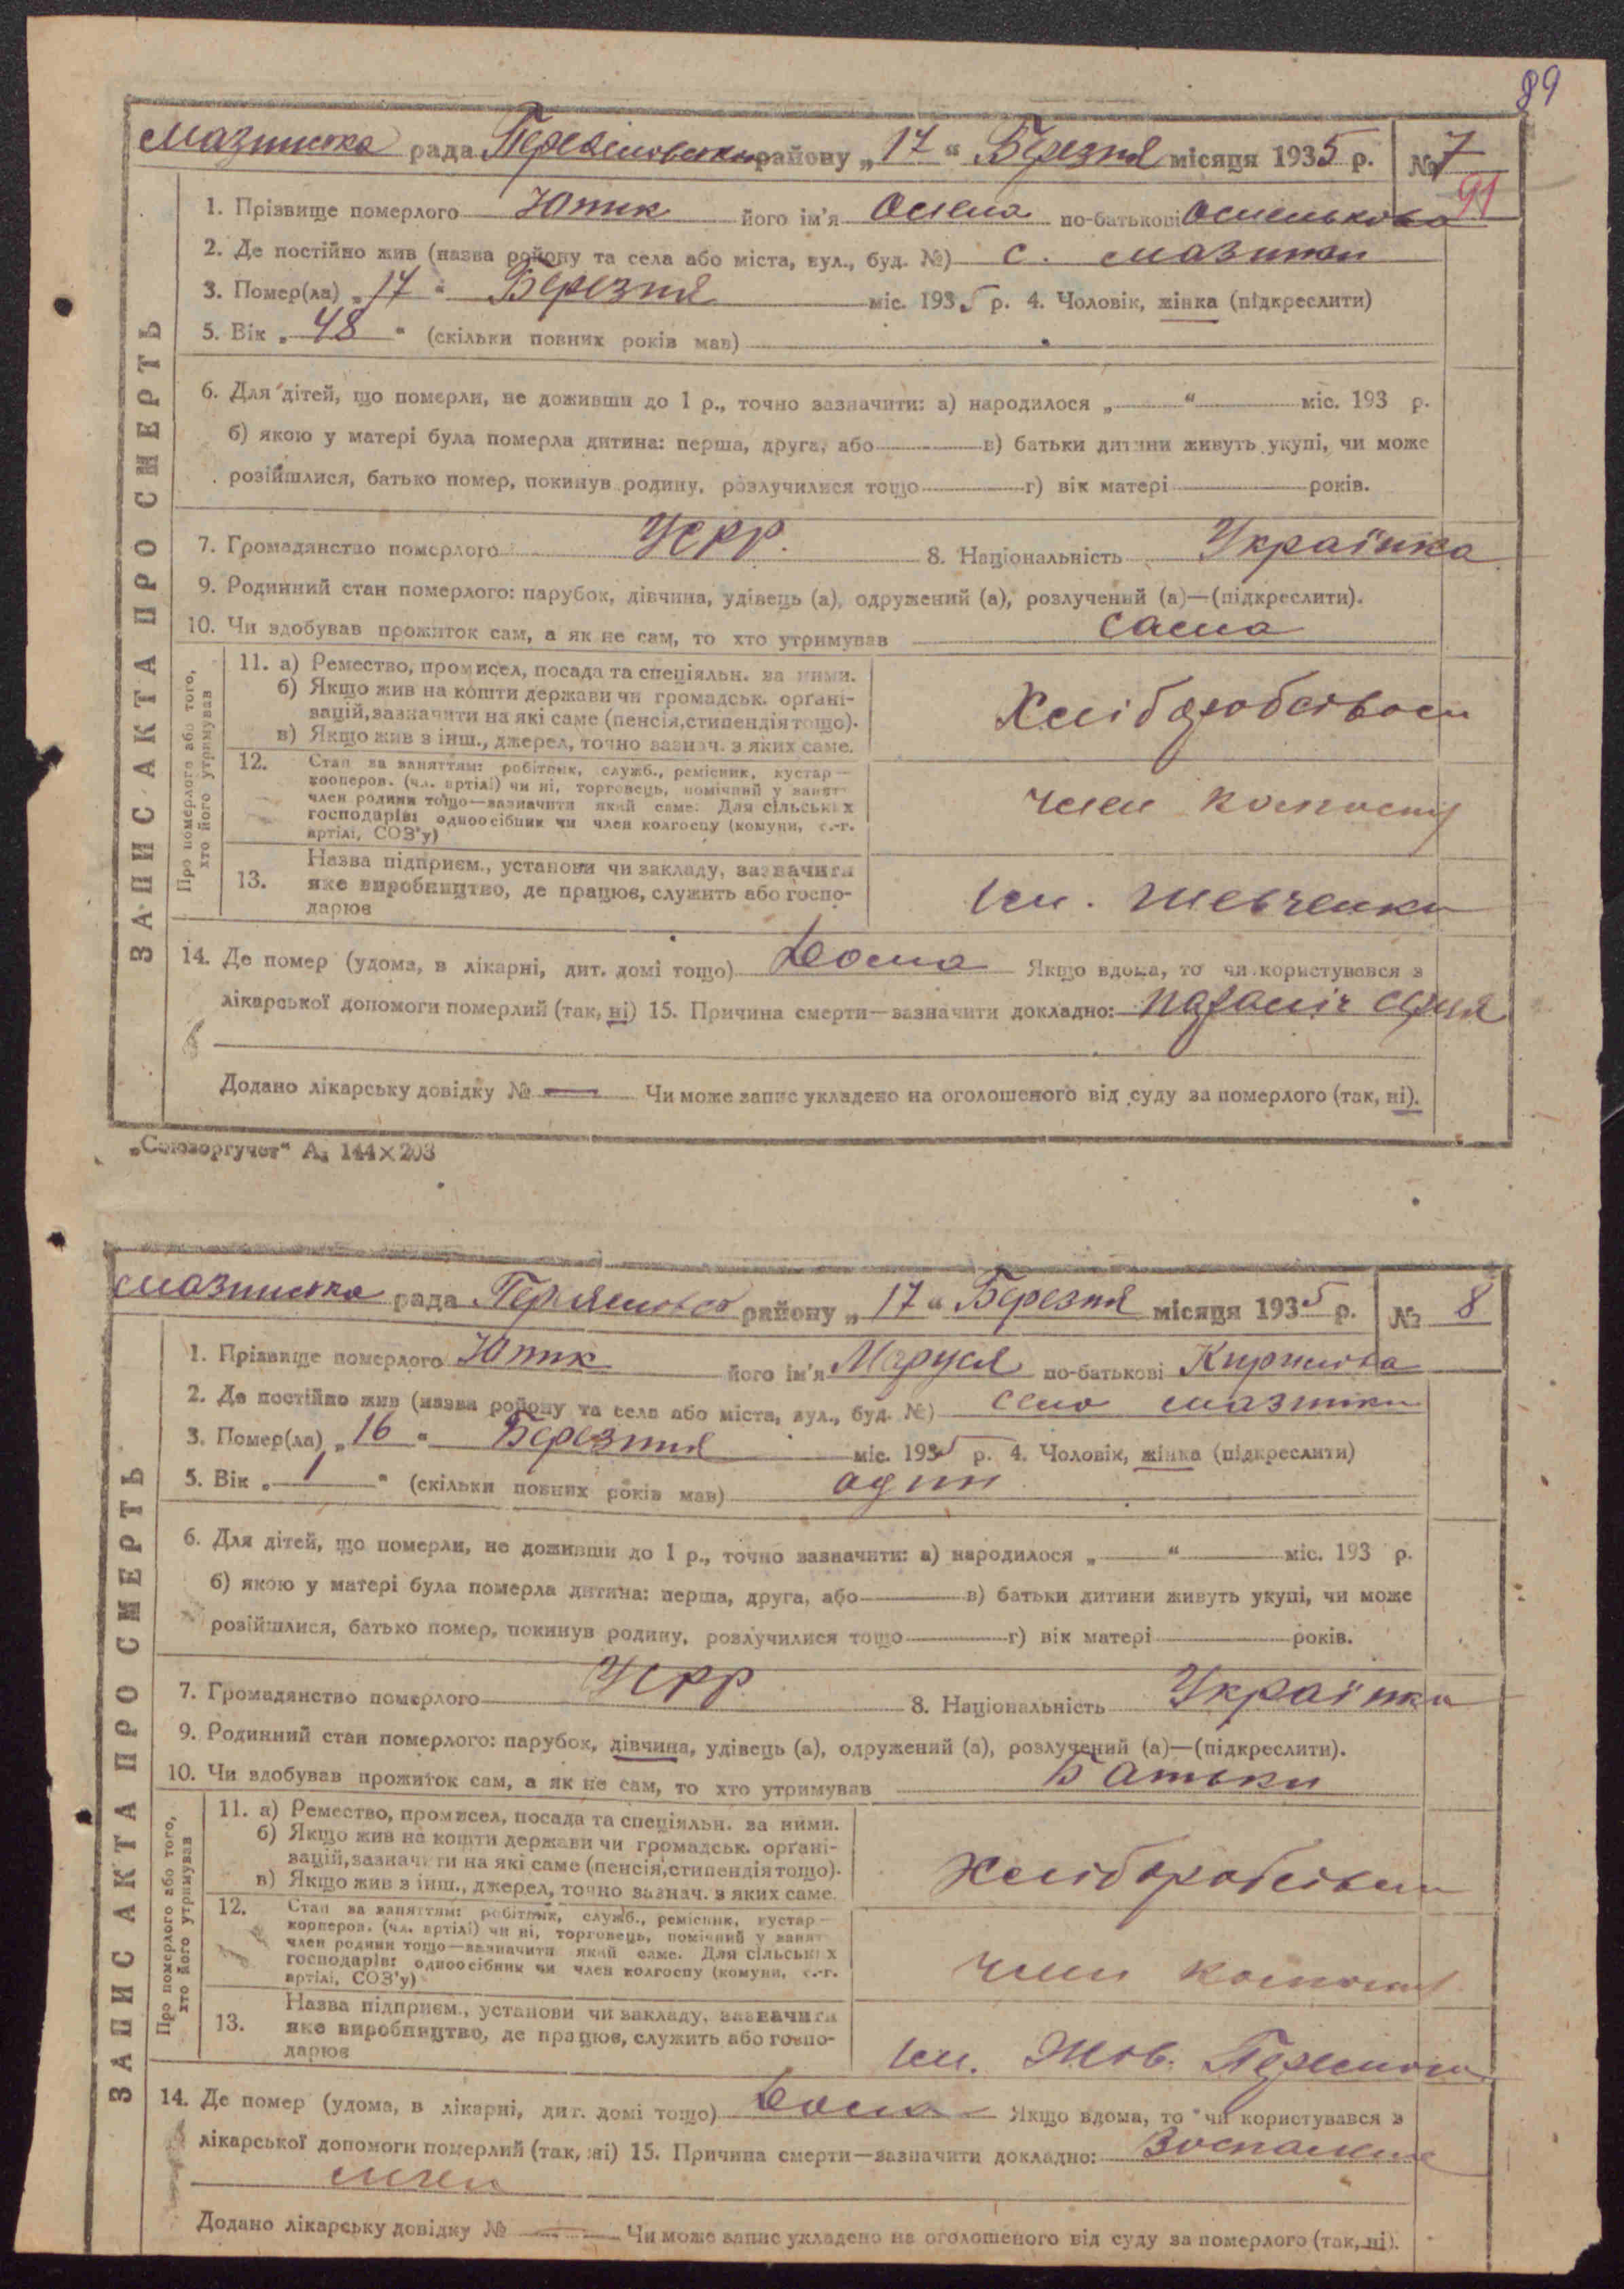 89
Мазинська рада району „17“ Березня місяця 1935 р. № 7
91
1. Прізвище померлого Юпик його ім'я по-батькові
2. Де постійно жив (назва району та села або міста, вул., буд. №) с. Мазинки
3. Помер(ла) „17“ Березня міс. 1935 р. 4. Чоловік, жінка (підкреслити)
5. Вік „48“ (скільки повних років мав)
6. Для дітей, що померли, не доживши до 1 р., точно зазначити: а) народилося „ “ міс. 193 р.
б) якою у матері була померла дитина: перша, друга, або в) батьки дитини живуть укупі, чи може
розійшлися, батько помер, покинув родину, розлучилися тощо г) вік матері років.
7. Громадянство померлого УСРР. 8. Національність Українка
9. Родинний стан померлого: парубок, дівчина, удівець (а), одружений (а), розлучений (а)—(підкреслити).
10. Чи здобував прожиток сам, а як не сам, то хто утримував сама
ЗАПИС АКТА ПРО СМЕРТЬ
Про померлого або того,
хто його утримував
11. а) Ремество, промисел, посада та спеціяльн. за ними.
б) Якщо жив на кошти держави чи громадськ. орґані-
зацій, зазначити на які саме (пенсія, стипендія тощо).
в) Якщо жив з інш., джерел, точно зазнач. з яких саме.
Хліборобством
12. Стан за заняттям: робітник, служб., ремісник, кустар—
кооперов. (чл. артілі) чи ні, торговець, помічний у занят
член родини тощо—зазначити який саме. Для сільських
господарів: одноосібник чи член колгоспу (комуни, с.-г.
артілі, СОЗ'у)
член колгоспу
13. Назва підприєм., установи чи закладу, зазначити
яке виробництво, де працює, служить або госпо-
дарює
ім. Шевченка
14. Де помер (удома, в лікарні, дит. домі тощо) Дома Якщо вдома, то чи користувався з
лікарської допомоги померлий (так, ні) 15. Причина смерти—зазначити докладно:
Додано лікарську довідку № — Чи може запис укладено на оголошеного від суду за померлого (так, ні).
„Союзоргучет“ А₅ 144×203
Мазинська рада району „17“ Березня місяця 1935 р. № 8
1. Прізвище померлого Юпик його ім'я Маруся по-батькові Кирилова
2. Де постійно жив (назва району та села або міста, вул., буд. №) село Мазинки
3. Помер(ла) „16“ Березня міс. 1935 р. 4. Чоловік, жінка (підкреслити)
5. Вік „1“ (скільки повних років мав) один
6. Для дітей, що померли, не доживши до 1 р., точно зазначити: а) народилося „ “ міс. 193 р.
б) якою у матері була померла дитина: перша, друга, або в) батьки дитини живуть укупі, чи може
розійшлися, батько помер, покинув родину, розлучилися тощо г) вік матері років.
7. Громадянство померлого УСРР 8. Національність Українка
9. Родинний стан померлого: парубок, дівчина, удівець (а), одружений (а), розлучений (а)—(підкреслити).
10. Чи здобував прожиток сам, а як не сам, то хто утримував Батьки
ЗАПИС АКТА ПРО СМЕРТЬ
Про померлого або того,
хто його утримував
11. а) Ремество, промисел, посада та спеціяльн. за ними.
б) Якщо жив на кошти держави чи громадськ. орґані-
зацій, зазначити на які саме (пенсія, стипендія тощо).
в) Якщо жив з інш., джерел, точно зазнач. з яких саме.
Хліборобством
12. Стан за заняттям: робітник, служб., ремісник, кустар—
кооперов. (чл. артілі) чи ні, торговець, помічний у занят
член родини тощо—зазначити який саме. Для сільських
господарів: одноосібник чи член колгоспу (комуни, с.-г.
артілі, СОЗ'у)
член колгоспу
13. Назва підприєм., установи чи закладу, зазначити
яке виробництво, де працює, служить або госпо-
дарює
ім. Жов.
14. Де помер (удома, в лікарні, дит. домі тощо) Дома Якщо вдома, то чи користувався з
лікарської допомоги померлий (так, ні) 15. Причина смерти—зазначити докладно: Воспаление
Додано лікарську довідку № — Чи може запис укладено на оголошеного від суду за померлого (так, ні).